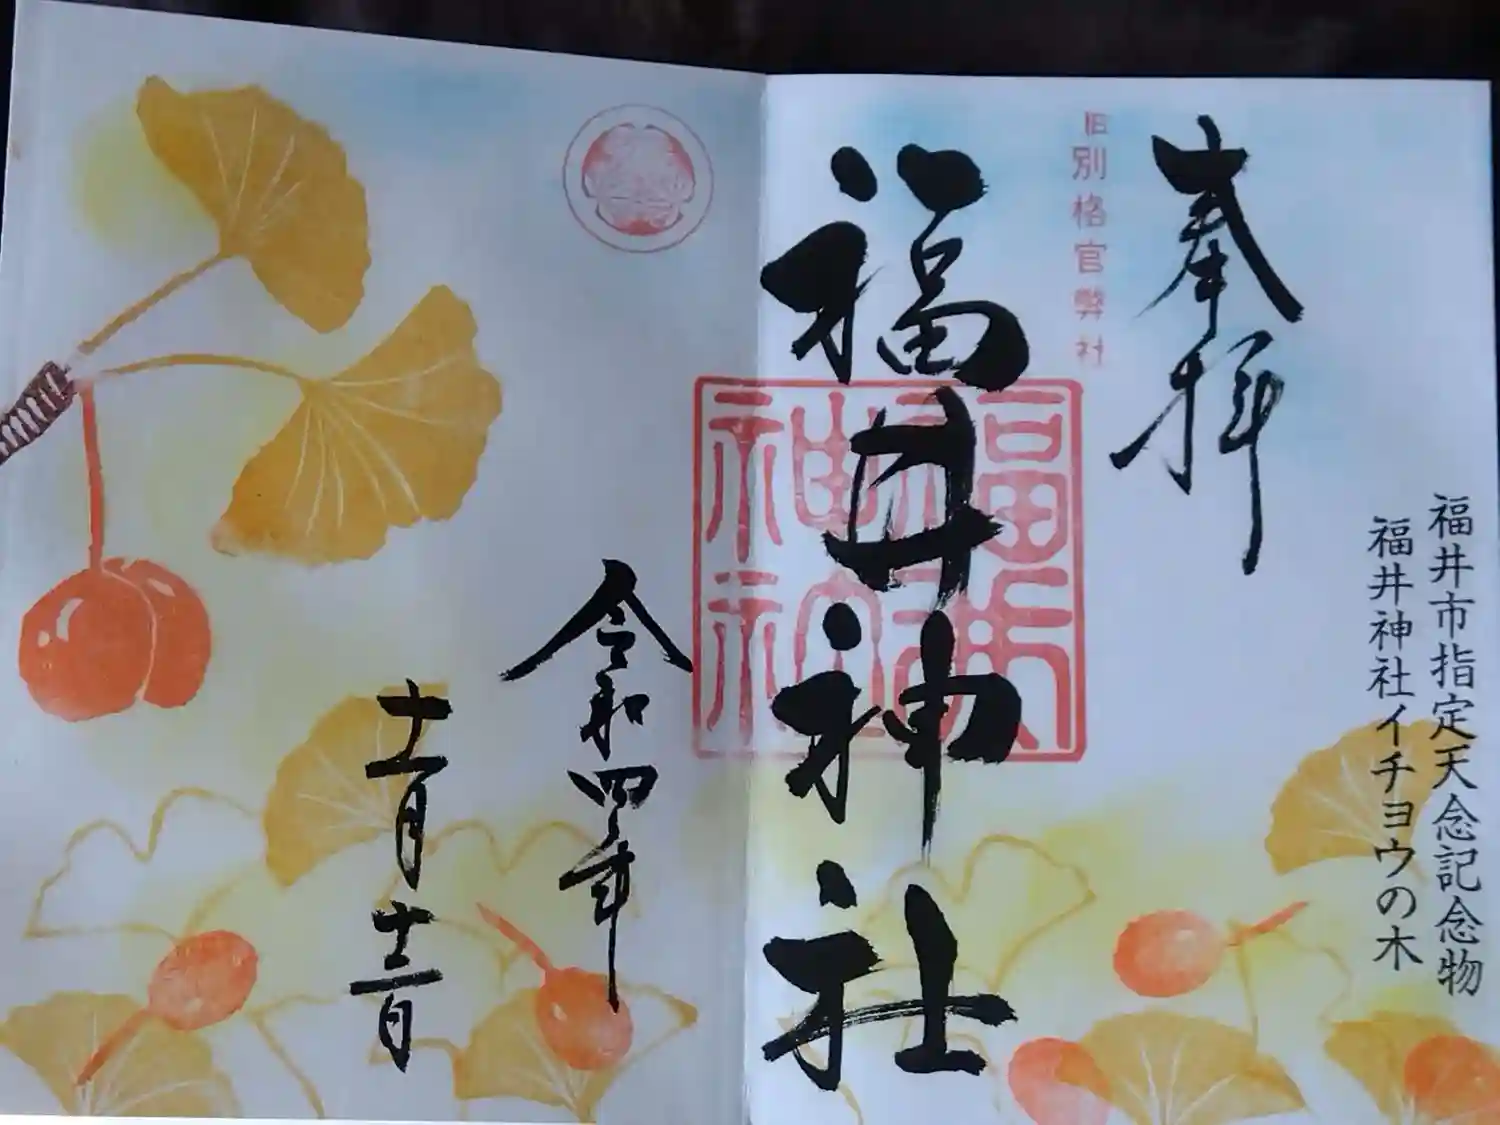 奉拝
福井市指定天念記念物
福井神社イチョウの木
旧別格官幣社
福井神社
令和四年
十一月